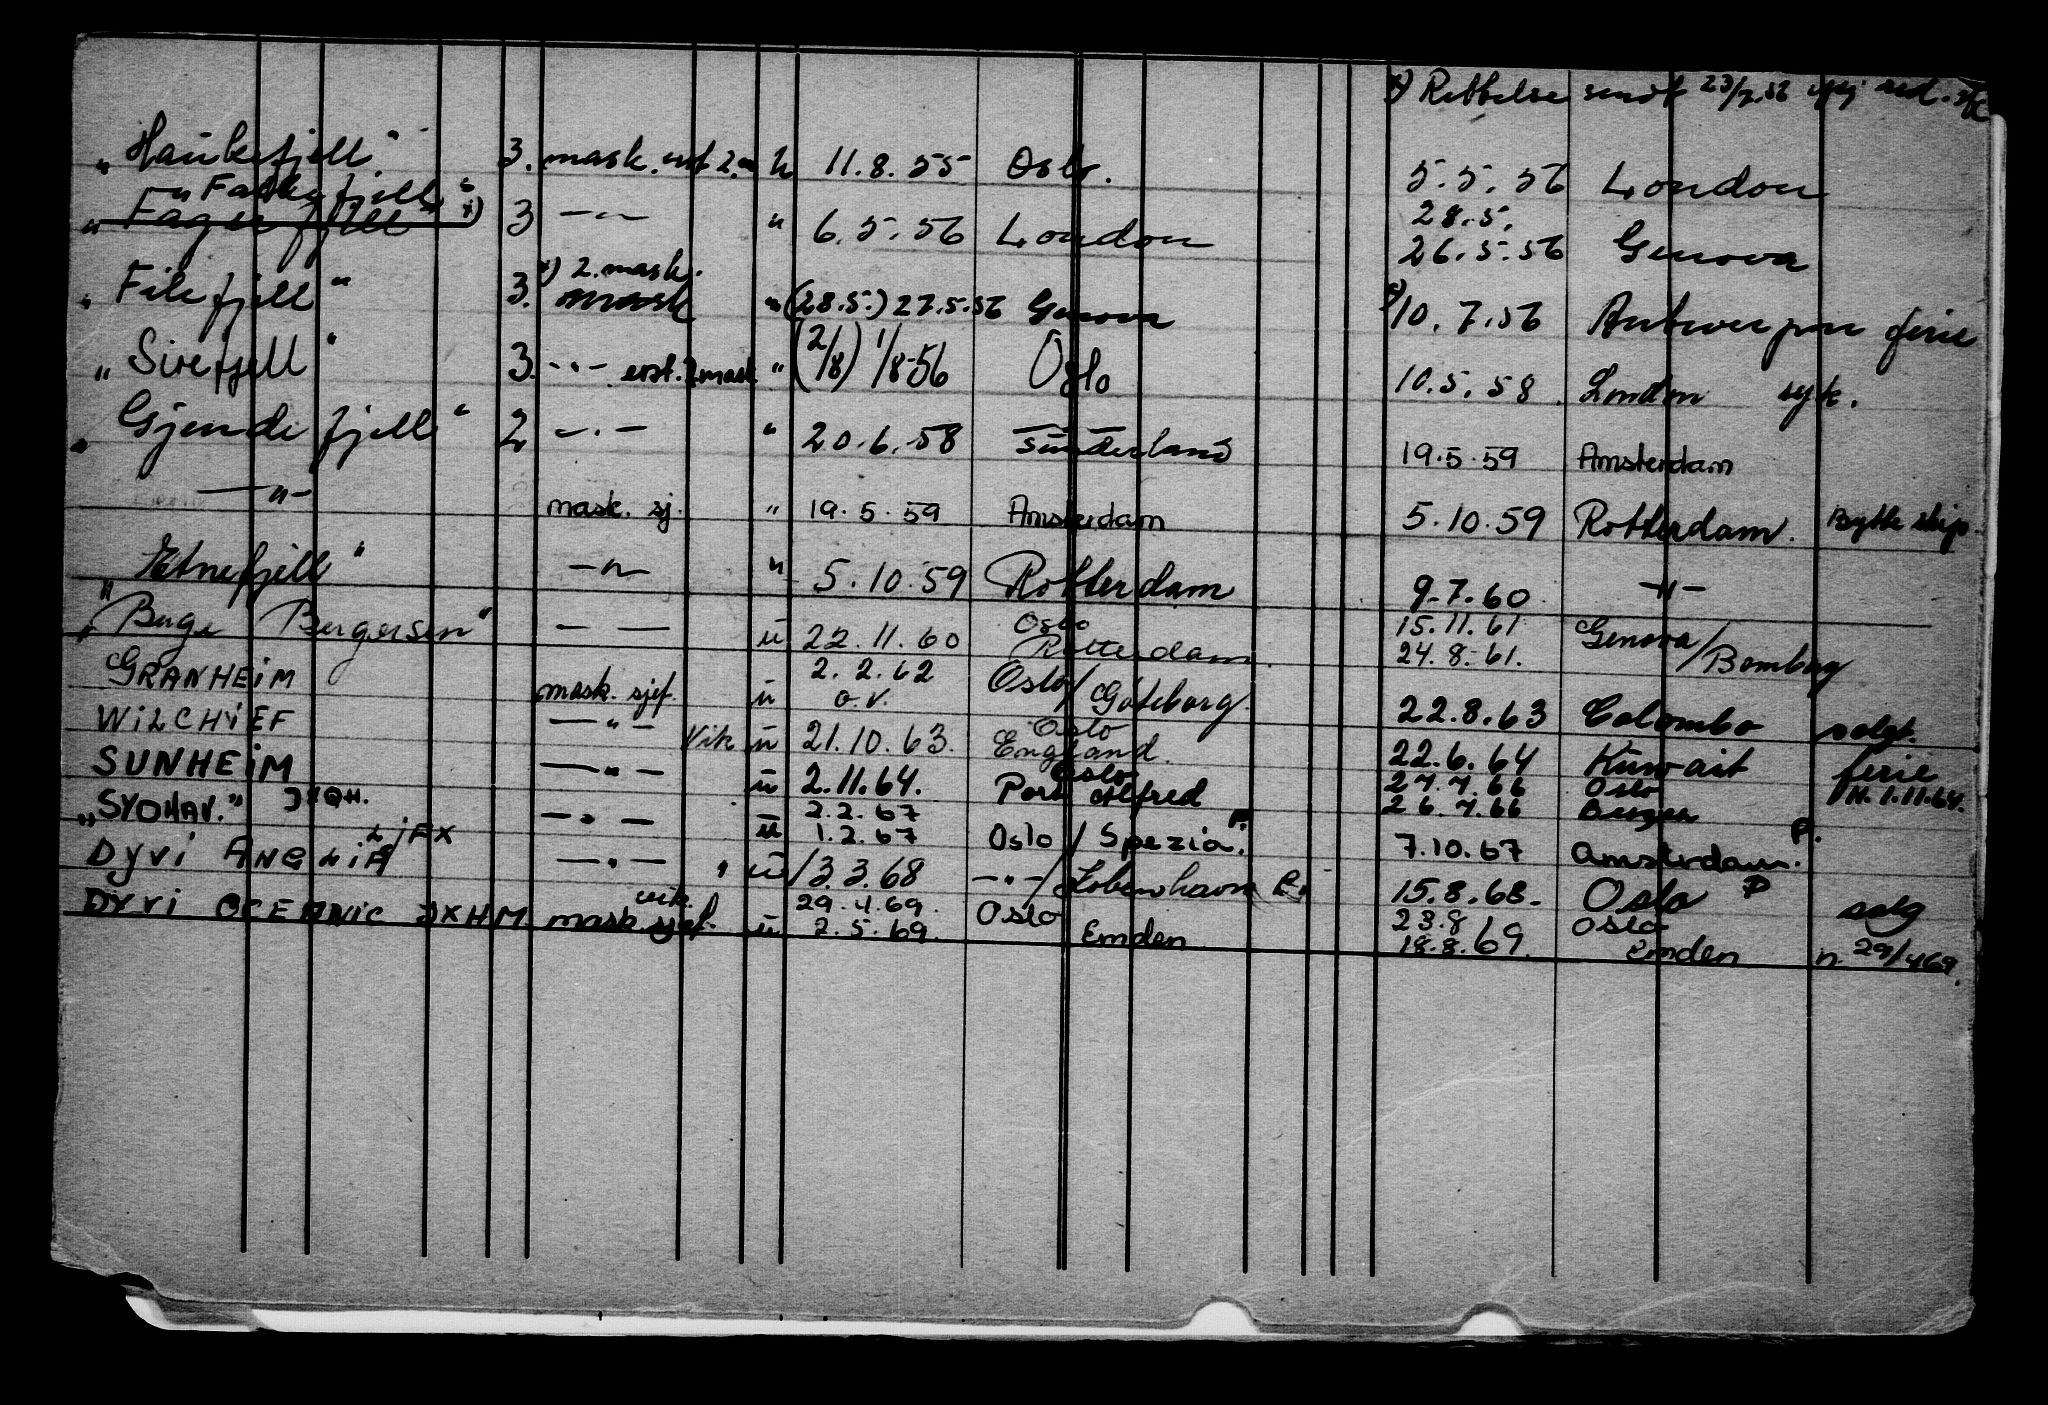 x) Rettelse sendt 23/7.56
"Haukefjell" 3. mask. erst 2. m u 11.8.55 Oslo. 5.5.56 London
"Falkefjell" x) 28.5.
"Fagerfjell" 3 —"— " 6.5.56 London 26.5.56 Genova
x) 2. mask.
"Filefjell" 3. mask " (28.5.) 27.5.56 Genova x) 10.7.56 Antwerpen ferie
"Sirefjell" 3. —"— erst. 2 mask " (2/8) 1/8-56 Oslo 10.5.58. London syk.
"Gjendefjell" 2 —"— " 20.6.58 Sunderland 19.5.59 Amsterdam
—"— mask. sj. " 19.5.59 Amsterdam 5.10.59 Rotterdam. Bytte skip.
"Etnefjell" —"— " 5.10.59 Rotterdam 9.7.60 —"—
Oslo 15.11.61
"Berge Bergesen" — — u 22.11.60 Rotterdam. 24.8.61. Genova/Bombay
2.2.62
GRANHEIM mask. sjef. u o.v. Oslo/Göteborg. 22.8.63 Colombo solgt.
Oslo
WILCHIEF —"— Vik u 21.10.63. England. 22.6.64 Kuwait ferie
Oslo 27.7.66 Oslo
SUNHEIM —"— u 2.11.64. Port Alfred 26.7.66 Bergen M. 1.11.64.
2.2.67
"SYDHAV." JXQH. —"— u 1.2.67 Oslo / Spezia. P. 7.10.67 Amsterdam. P.
LJFX
DYVI ANGLIA —"— " u 13.3.68 —"—/Kobenhavn P. 15.8.68. Oslo P salg
vik. 29.4.69. Oslo 23.8 Oslo
DYVI OCEANIC JXHM mask. sjef. u 2.5.69. Emden 18.8.69. Emden n. 29/4 69.